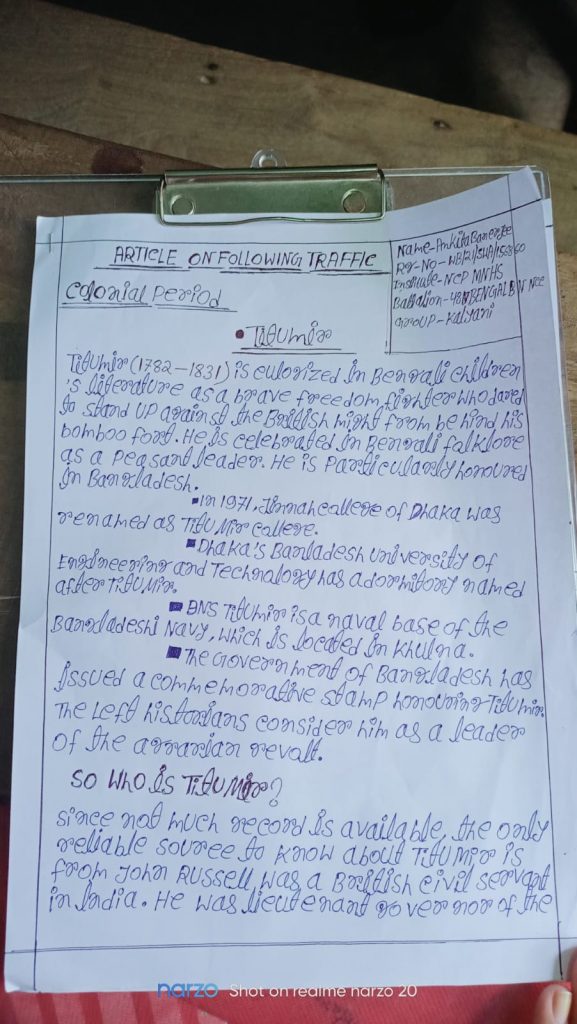 ARTICLE ON FOLLOWING TRAFFIC
Name-Ankita Banerjee
Institute-NCP MNHS
Group-Kalyani
Colonial Period
• Titumir
Titumir (1782-1831) is eulorized in Bengali children
's literature as a brave freedom fighter who dared
to stand up against the British might from be hind his
bomboo fort. He is celebrated in Bengali folklore
as a peasant leader. He is particularly honoured
in Bangladesh.
▪ In 1971, Jinnah college of Dhaka was
renamed as Titu Mir college.
▪ Dhaka's Banladesh university of
Engineering and Technology has a dormitory named
after Titu Mir.
▪ BNS Titumir is a naval base of the
Bangladeshi Navy, which is located in Khulna.
▪ The Government of Bangladesh has
issued a commemorative stamp honouring Titumir.
The Left historians consider him as a leader
of the agrarian revolt.
SO WHO IS TITU MIR?
since not much record is available, the only
reliable source to know about Titu Mir is
from John Russell was a British civil servant
in India. He was lieutenant governor of the
narzo Shot on realme narzo 20